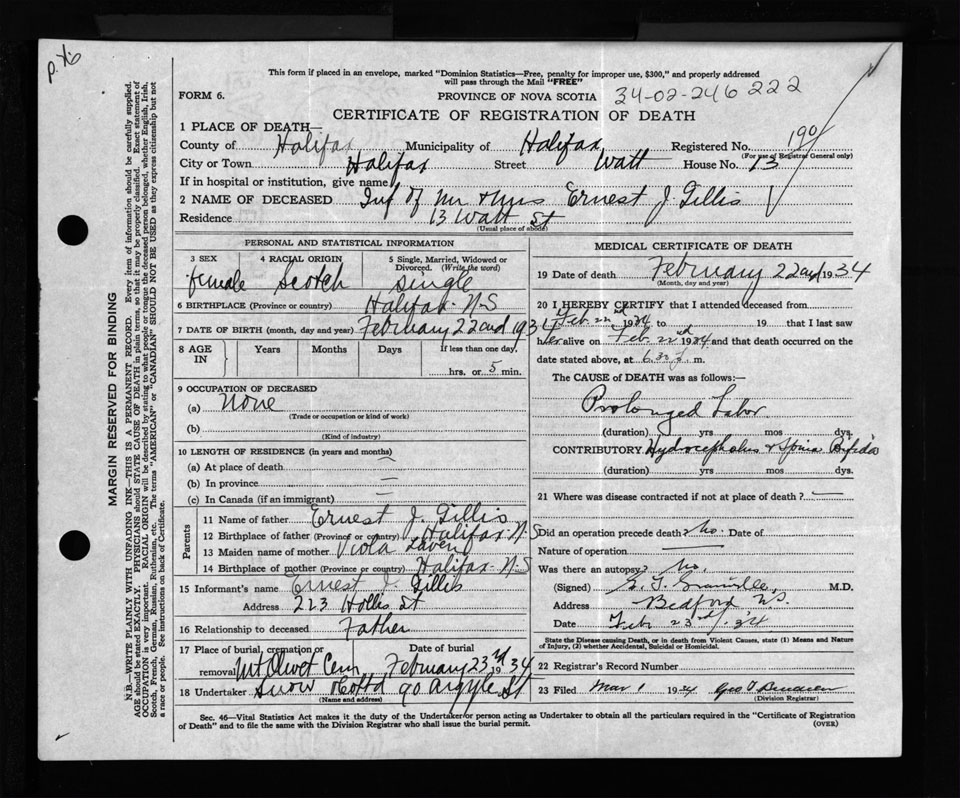 p. 46
This form if placed in an envelope, marked "Dominion Statistics—Free, penalty for improper use, $300," and properly addressed
will pass through the Mail "FREE"
FORM 6. PROVINCE OF NOVA SCOTIA 34-02-246 222
CERTIFICATE OF REGISTRATION OF DEATH
1 PLACE OF DEATH—
County of Halifax Municipality of Halifax Registered No. 190
(For use of Registrar General only)
City or Town Halifax Street Watt House No. 13
If in hospital or institution, give name
2 NAME OF DECEASED Inf of Mr & Mrs Ernest J. Gillis
Residence 13 Watt St
(Usual place of abode)
PERSONAL AND STATISTICAL INFORMATION
3 SEX 4 RACIAL ORIGIN 5 Single, Married, Widowed or
Divorced. (Write the word)
female Scotch single
6 BIRTHPLACE (Province or country) Halifax N-S
7 DATE OF BIRTH (month, day and year) February 22nd 1934
8 AGE IN Years Months Days If less than one day,
hrs. or 5 min.
9 OCCUPATION OF DECEASED
(a) None
(Trade or occupation or kind of work)
(b)
(Kind of industry)
10 LENGTH OF RESIDENCE (in years and months)
(a) At place of death —
(b) In province —
(c) In Canada (if an immigrant) —
Parents
11 Name of father Ernest J. Gillis
12 Birthplace of father (Province or country) Halifax N-S
13 Maiden name of mother Viola
14 Birthplace of mother (Province or country) Halifax N-S
15 Informant's name Ernest J. Gillis
Address 223 Hollis St
16 Relationship to deceased Father
17 Place of burial, cremation or Date of burial
removal Mt Olivet Cem February 23rd 1934
18 Undertaker Snow & Co Ltd 90 Argyle St
(Name and address)
MEDICAL CERTIFICATE OF DEATH
19 Date of death February 22nd 1934
(Month, day and year)
20 I HEREBY CERTIFY that I attended deceased from
Feb 22nd 1934 to 19 that I last saw
her alive on Feb. 22nd 1934 and that death occurred on the
date stated above, at 6.30 p. m.
The CAUSE of DEATH was as follows:—
Prolonged Labor
(duration) yrs mos dys.
CONTRIBUTORY Hydrocephalus & Spina Bifida
(duration) yrs mos dys.
21 Where was disease contracted if not at place of death? —
Did an operation precede death? No. Date of
Nature of operation —
Was there an autopsy? No.
(Signed) M.D.
Address Bedford N.S.
Date Feb. 23rd/34
State the Disease causing Death, or in death from Violent Causes, state (1) Means and Nature
of Injury, (2) whether Accidental, Suicidal or Homicidal.
22 Registrar's Record Number
23 Filed Mar 1 1934 Geo
(Division Registrar)
Sec. 46—Vital Statistics Act makes it the duty of the Undertaker or person acting as Undertaker to obtain all the particulars required in the "Certificate of Registration
of Death" and to file the same with the Division Registrar who shall issue the burial permit. (OVER)
MARGIN RESERVED FOR BINDING
N.B.—WRITE PLAINLY WITH UNFADING INK—THIS IS A PERMANENT RECORD. Every item of information should be carefully supplied.
AGE should be stated EXACTLY. PHYSICIANS should STATE CAUSE OF DEATH in plain terms, so that it may be properly classified. Exact statement of
OCCUPATION is very important. RACIAL ORIGIN will be described by stating to what people or tongue the deceased person belonged, whether English, Irish,
Scotch, French, German, Russian, Ruthenian, etc. The terms "AMERICAN" or "CANADIAN" SHOULD NOT BE USED as they express citizenship but not
a race or people. See instructions on back of Certificate.